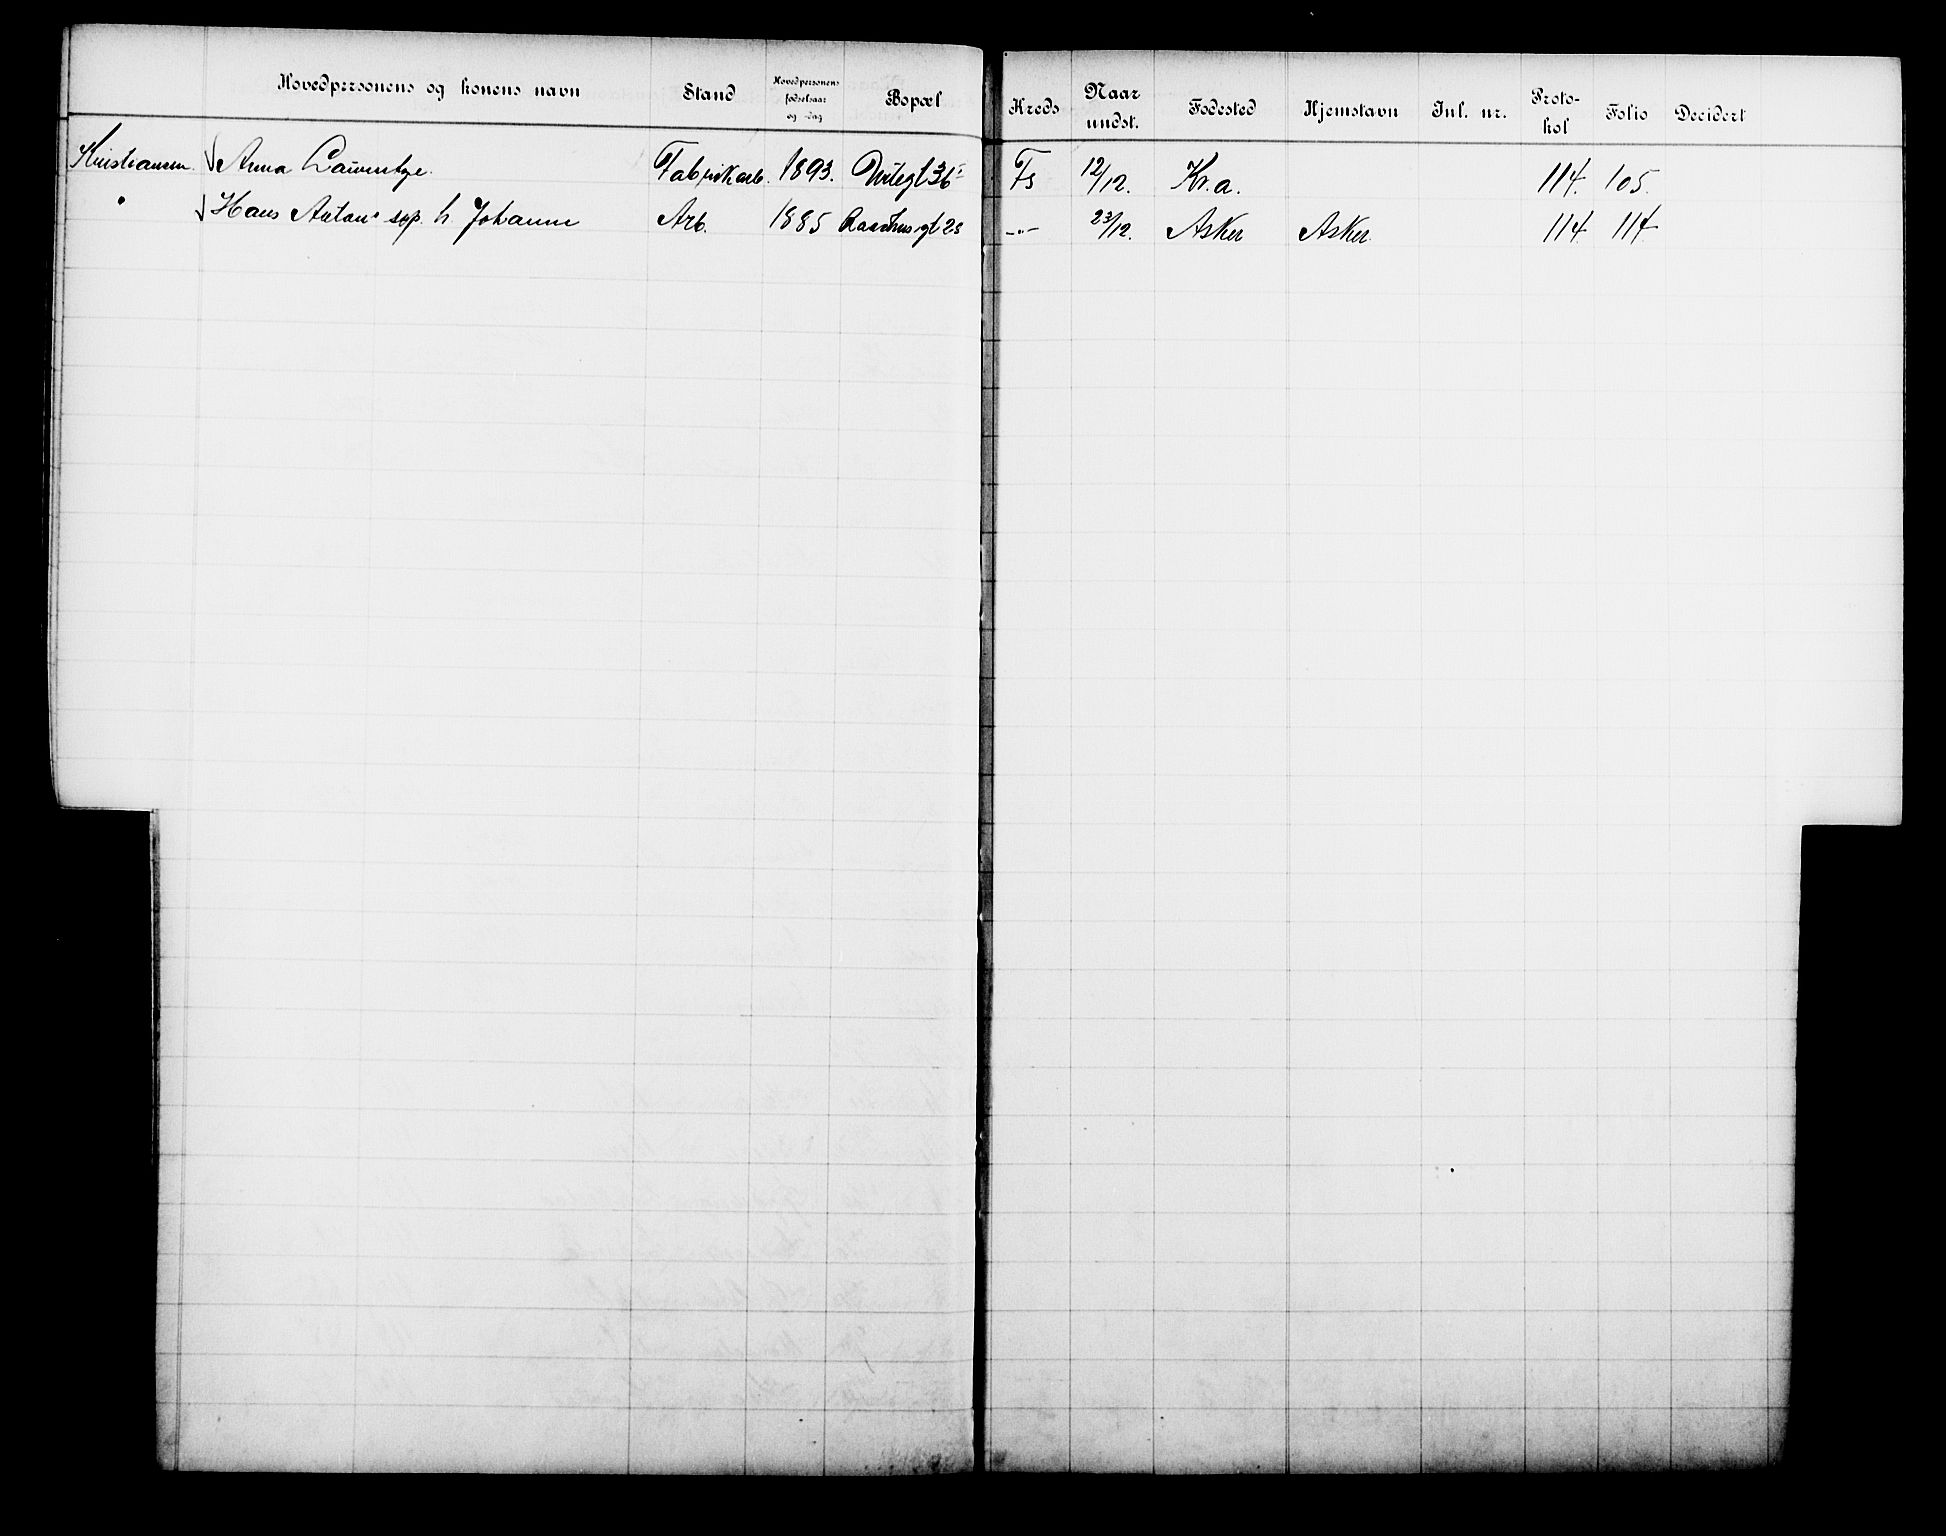 Hovedpersonens og konens navn Stand Hovedpersonens fødselsaar og -dag Bopæl Kreds Naar undst. Fødested Hjemstavn Inl. nr. Proto- kol Folio Decidert
Kristiansen Anna Lauentze Fabrikarb. 1893. 36 Fs 12/12. Kr.a. 114. 105.
" Hans Anton sep. h. Johanne Arb. 1885 Raadhusgt 28 -"- 23/12. Asker Asker 114. 114